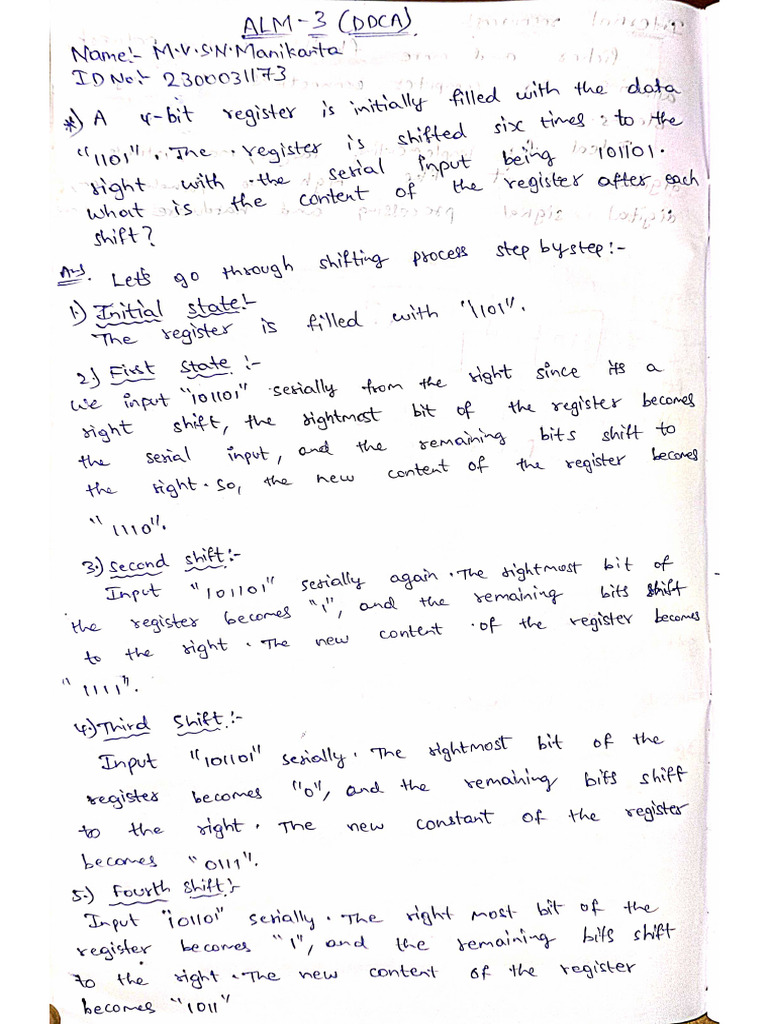 ALM-3 (DDCA).
Name:- M.V.S.N.Manikanta
ID No:- 2300031173
*) A 4-bit register is initially filled with the data
"1101". The register is shifted six times to the
right with the serial input being 101101.
what is the content of the register after each
shift?
Ans. Let's go through shifting process step by step:-
1.) Initial state:-
The register is filled with "1101".
2.) First state :-
We input "101101" serially from the right since its a
right shift, the rightmost bit of the register becomes
the serial input, and the remaining bits shift to
the right. So, the new content of the register becomes
"1110".
3.) Second shift:-
Input "101101" serially again. The rightmost bit of
the register becomes "1", and the remaining bits shift
to the right. The new content of the register becomes
"1111".
4.) Third Shift:-
Input "101101" serially. The rightmost bit of the
register becomes "0", and the remaining bits shift
to the right. The new constant of the register
becomes "0111".
5.) Fourth shift:-
Input "101101" serially. The right most bit of the
register becomes "1", and the remaining bits shift
to the right. The new content of the register
becomes "1011"